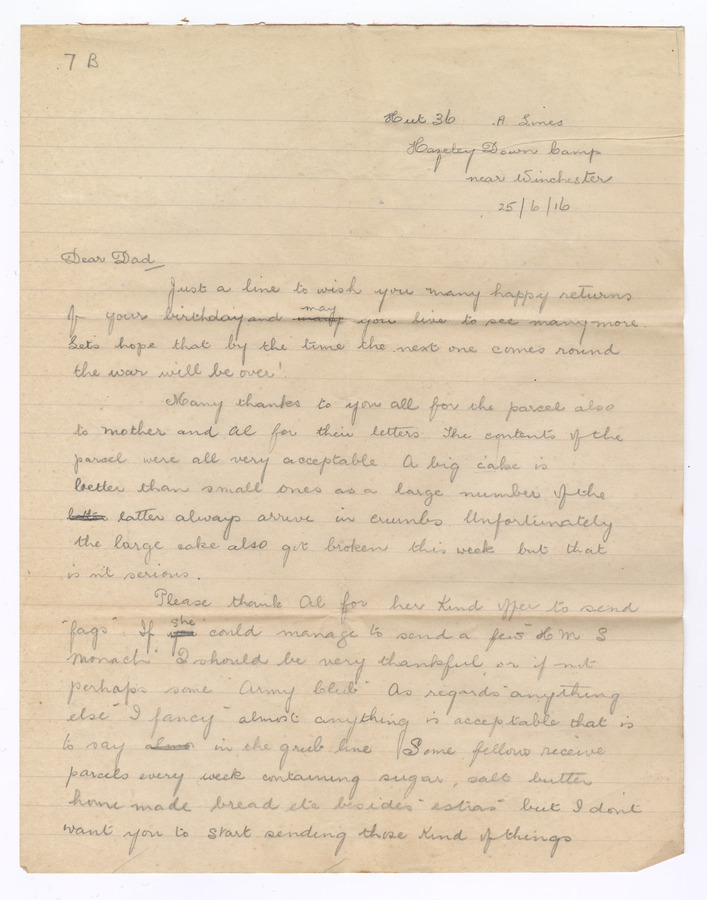 7 B
Hut 36 A Lines
Hazeley Down Camp
near Winchester
25/6/16
Dear Dad
Just a line to wish you many happy returns
of your birthday and may you live to see many more.
Lets hope that by the time the next one comes round
the war will be over!
Many thanks to you all for the parcel also
to mother and Al for their letters. The contents of the
parcel were all very acceptable. A big cake is
better than small ones as a large number of the
latter always arrive in crumbs. Unfortunately
the large cake also got broken this week but that
is n't serious.
Please thank Al for her kind offer to send
"fags". If she could manage to send a few "H M S
Monach" I should be very thankful or if not
perhaps some "Army Club" As regards "anything
else" I fancy "almost anything is acceptable that is
to say in the grub line. Some fellows receive
parcels every week containing sugar, salt butter
home made bread etc besides "extras" but I don't
want you to start sending those kind of things